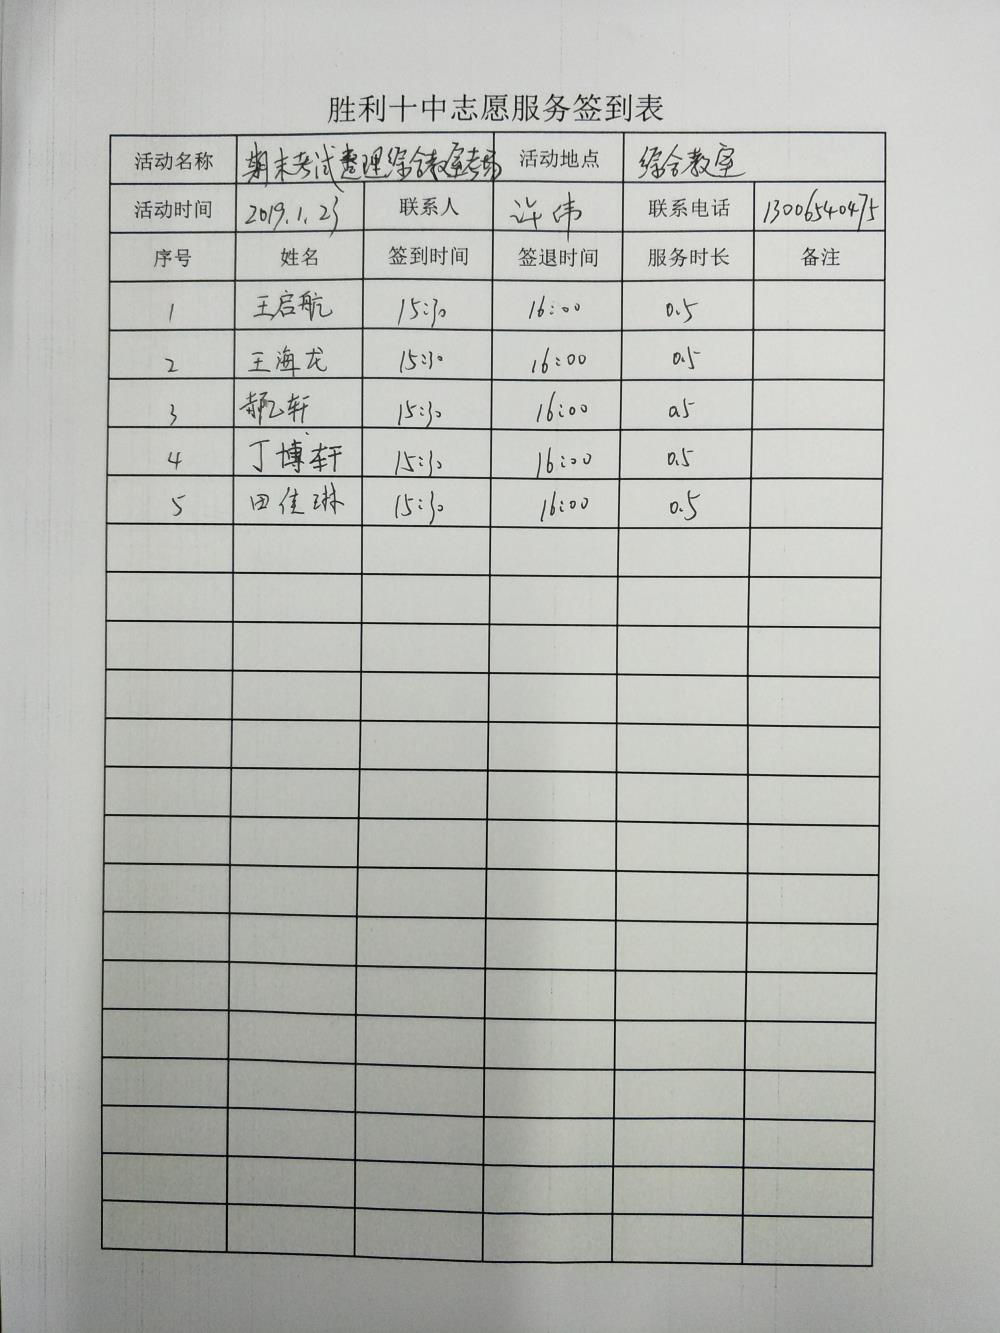 胜利十中志愿服务签到表
活动名称 期末考试整理综合教室考场 活动地点 综合教室
活动时间 2019.1.23 联系人 许伟 联系电话 13006540475
序号 姓名 签到时间 签退时间 服务时长 备注
1 王启航 15:30 16:00 0.5
2 王海龙 15:30 16:00 0.5
3 郝乙轩 15:30 16:00 0.5
4 丁博轩 15:30 16:00 0.5
5 田佳琳 15:30 16:00 0.5